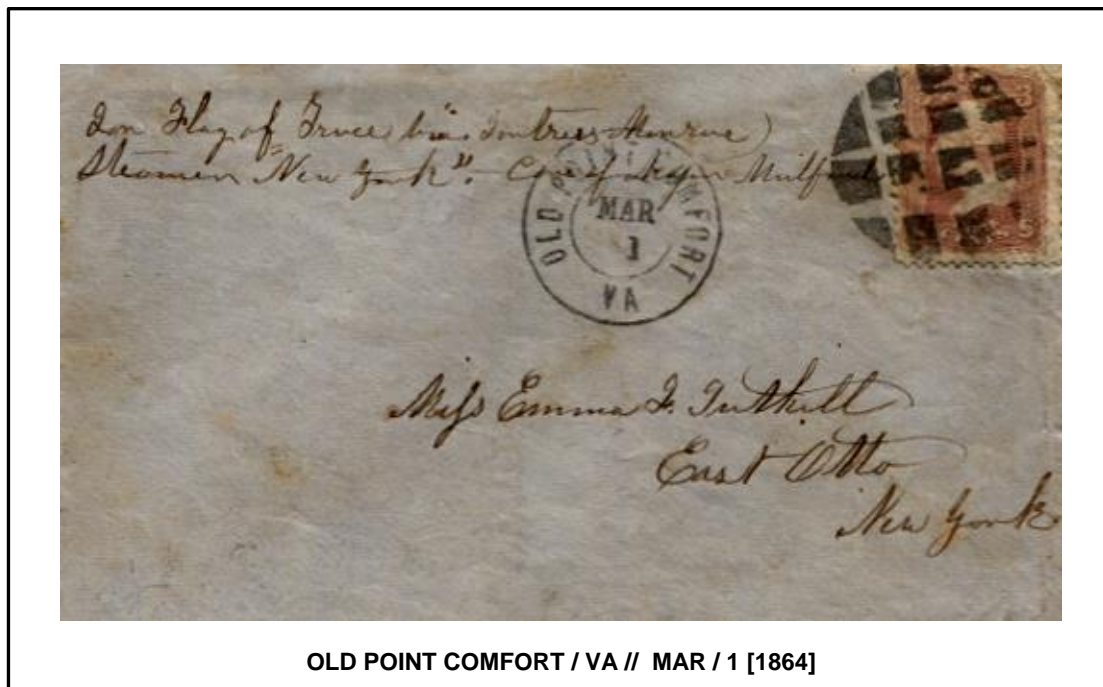 Flag of Truce via Fortress Monroe
Steamer New York". Care of Major Mulford
OLD POINT COMFORT
MAR
1
VA
Miss Emma F. Tuthill
East Otto
New York.
OLD POINT COMFORT / VA // MAR / 1 [1864]